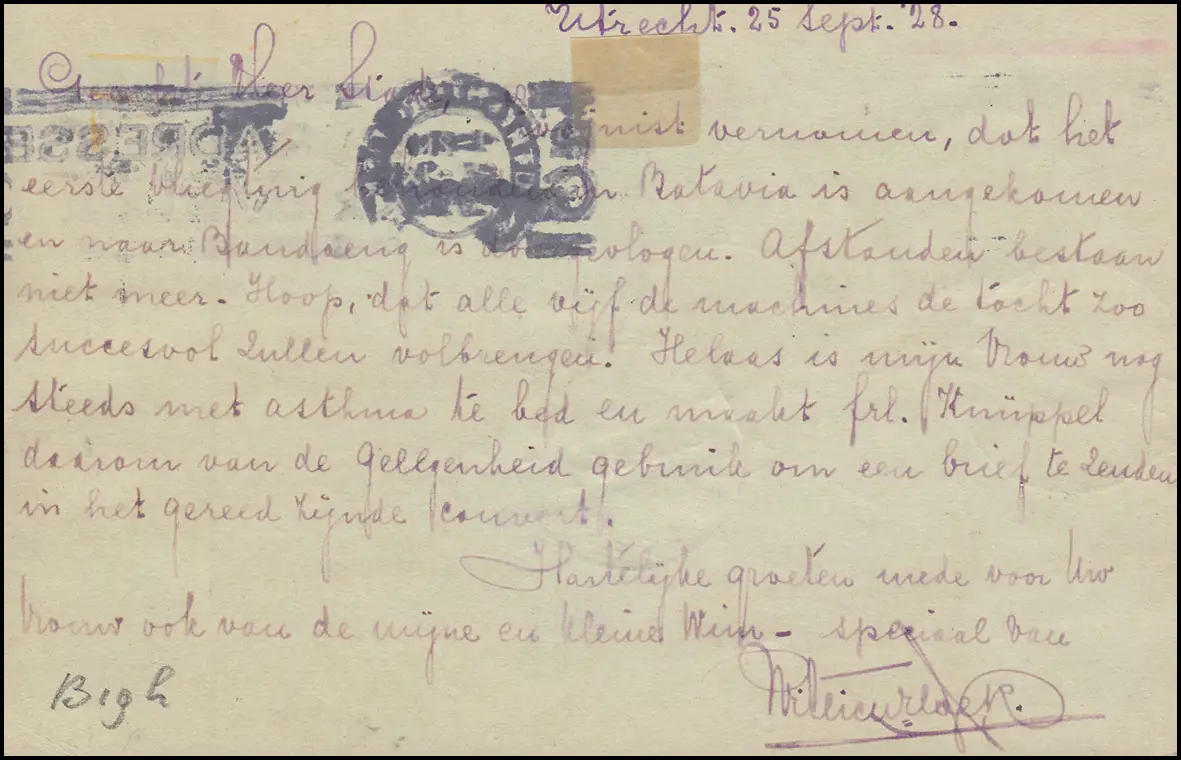 Utrecht. 25 Sept. '28.
Geachte Heer
ADRESSE
vernomen, dat het
eerste vliegtuig behouden in Batavia is aangekomen
en naar Bandoeng is doorgevlogen. Afstanden bestaan
niet meer. Hoop, dat alle vijf de machines de tocht zoo
succesvol zullen volbrengen. Helaas is mijn Vrouw nog
steeds met asthma te bed en maakt frl. Knüppel
daarom van de gelegenheid gebruik om een brief te zenden
in het gereed zijnde couvert.
Hartelijke groeten mede voor Uw
Vrouw ook van de mijne en kleine Wim - speciaal van
Bigh